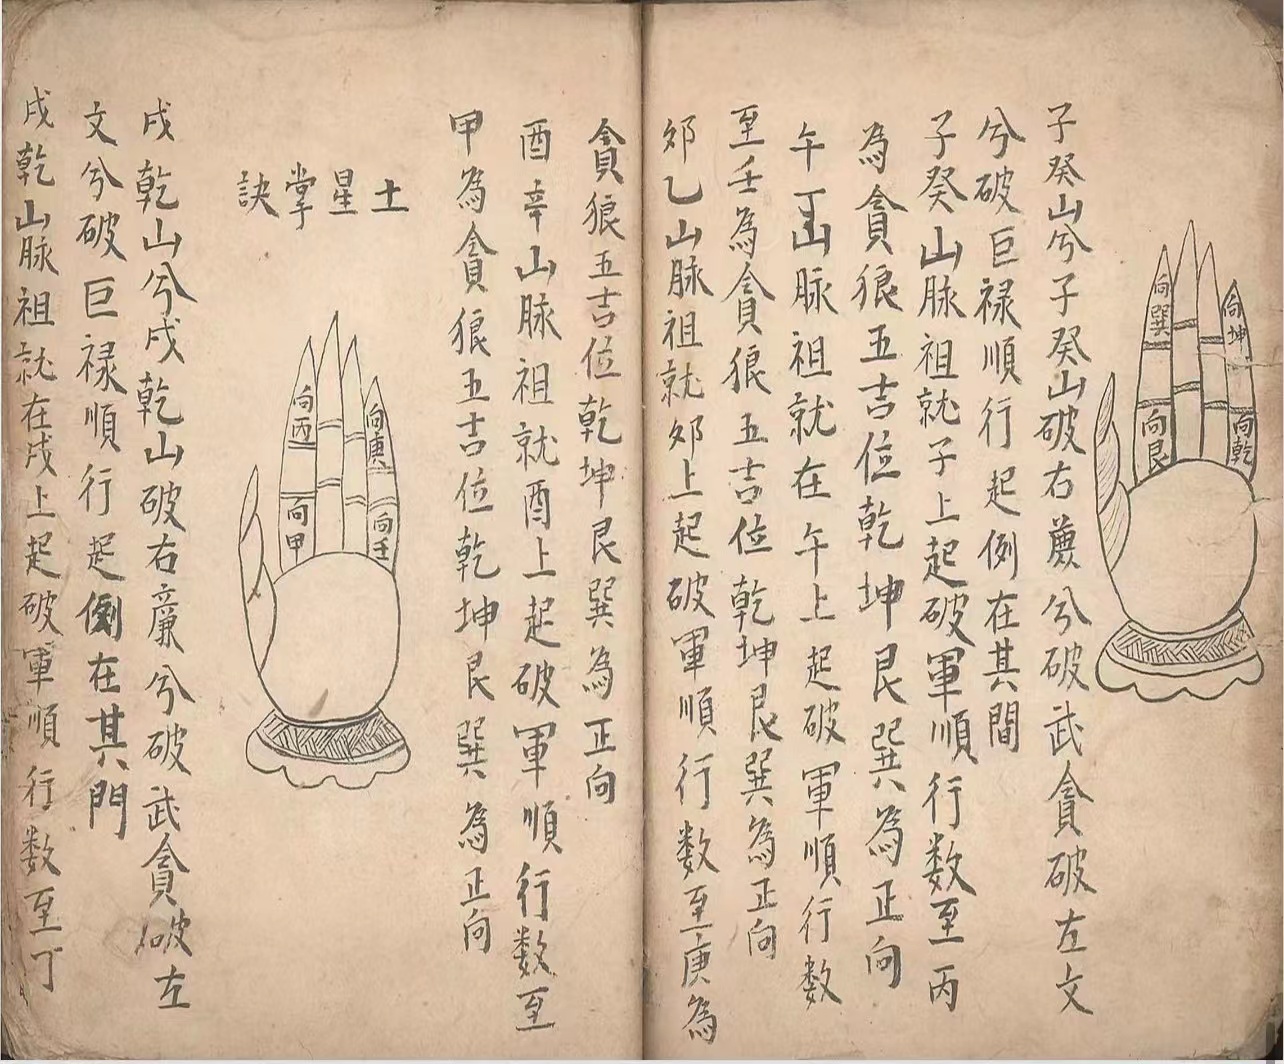 向巽
向艮
向坤
向乾
子癸山兮子癸山破右廉兮破武貪破左文
兮破巨禄順行起例在其間
子癸山脉祖就子上起破軍順行数至丙
為貪狼五吉位乾坤艮巽為正向
午丁山脉祖就在午上起破軍順行数
至壬為貪狼五吉位乾坤艮巽為正向
卯乙山脉祖就卯上起破軍順行数至庚為
貪狼五吉位乾坤艮巽為正向
酉辛山脉祖就酉上起破軍順行数至
甲為貪狼五吉位乾坤艮巽為正向
土星掌訣
向丙
向甲
向庚
向壬
戌乾山兮戌乾山破右廉兮破武貪破左
文兮破巨禄順行起例在其門
戌乾山脉祖就在戌上起破軍順行数至丁